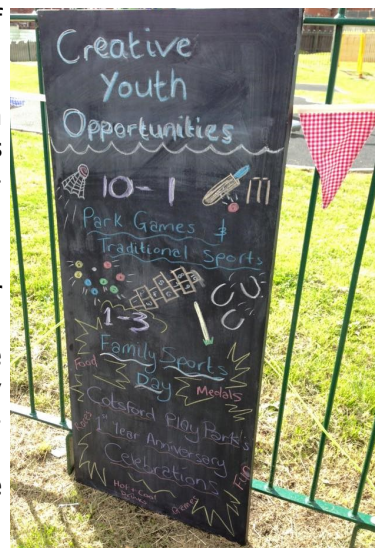 Creative
Youth
Opportunities
10-1
Park Games &
Traditional Sports
1-3
Family Sports
Day
Food
Medals
Cotsford Play Park's
1st Year Anniversary
Celebrations
Fun
Hot & Cool
Drinks